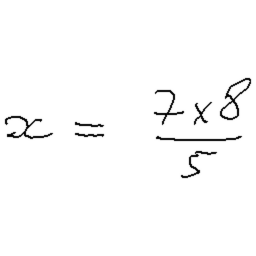 x = \frac{7 \times 8}{5}